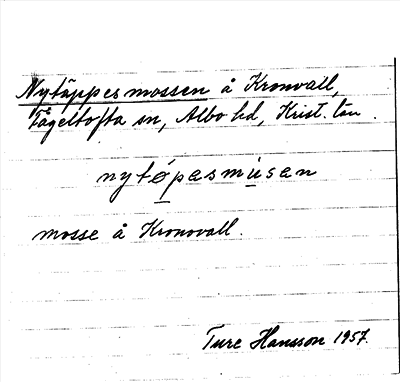 Nytäppesmossen å Kronvall,
Fågeltofta sn, Albo hd, Krist. län.
nytǿpasmusen
mosse å Kronovall.
Ture Hansson 1957.